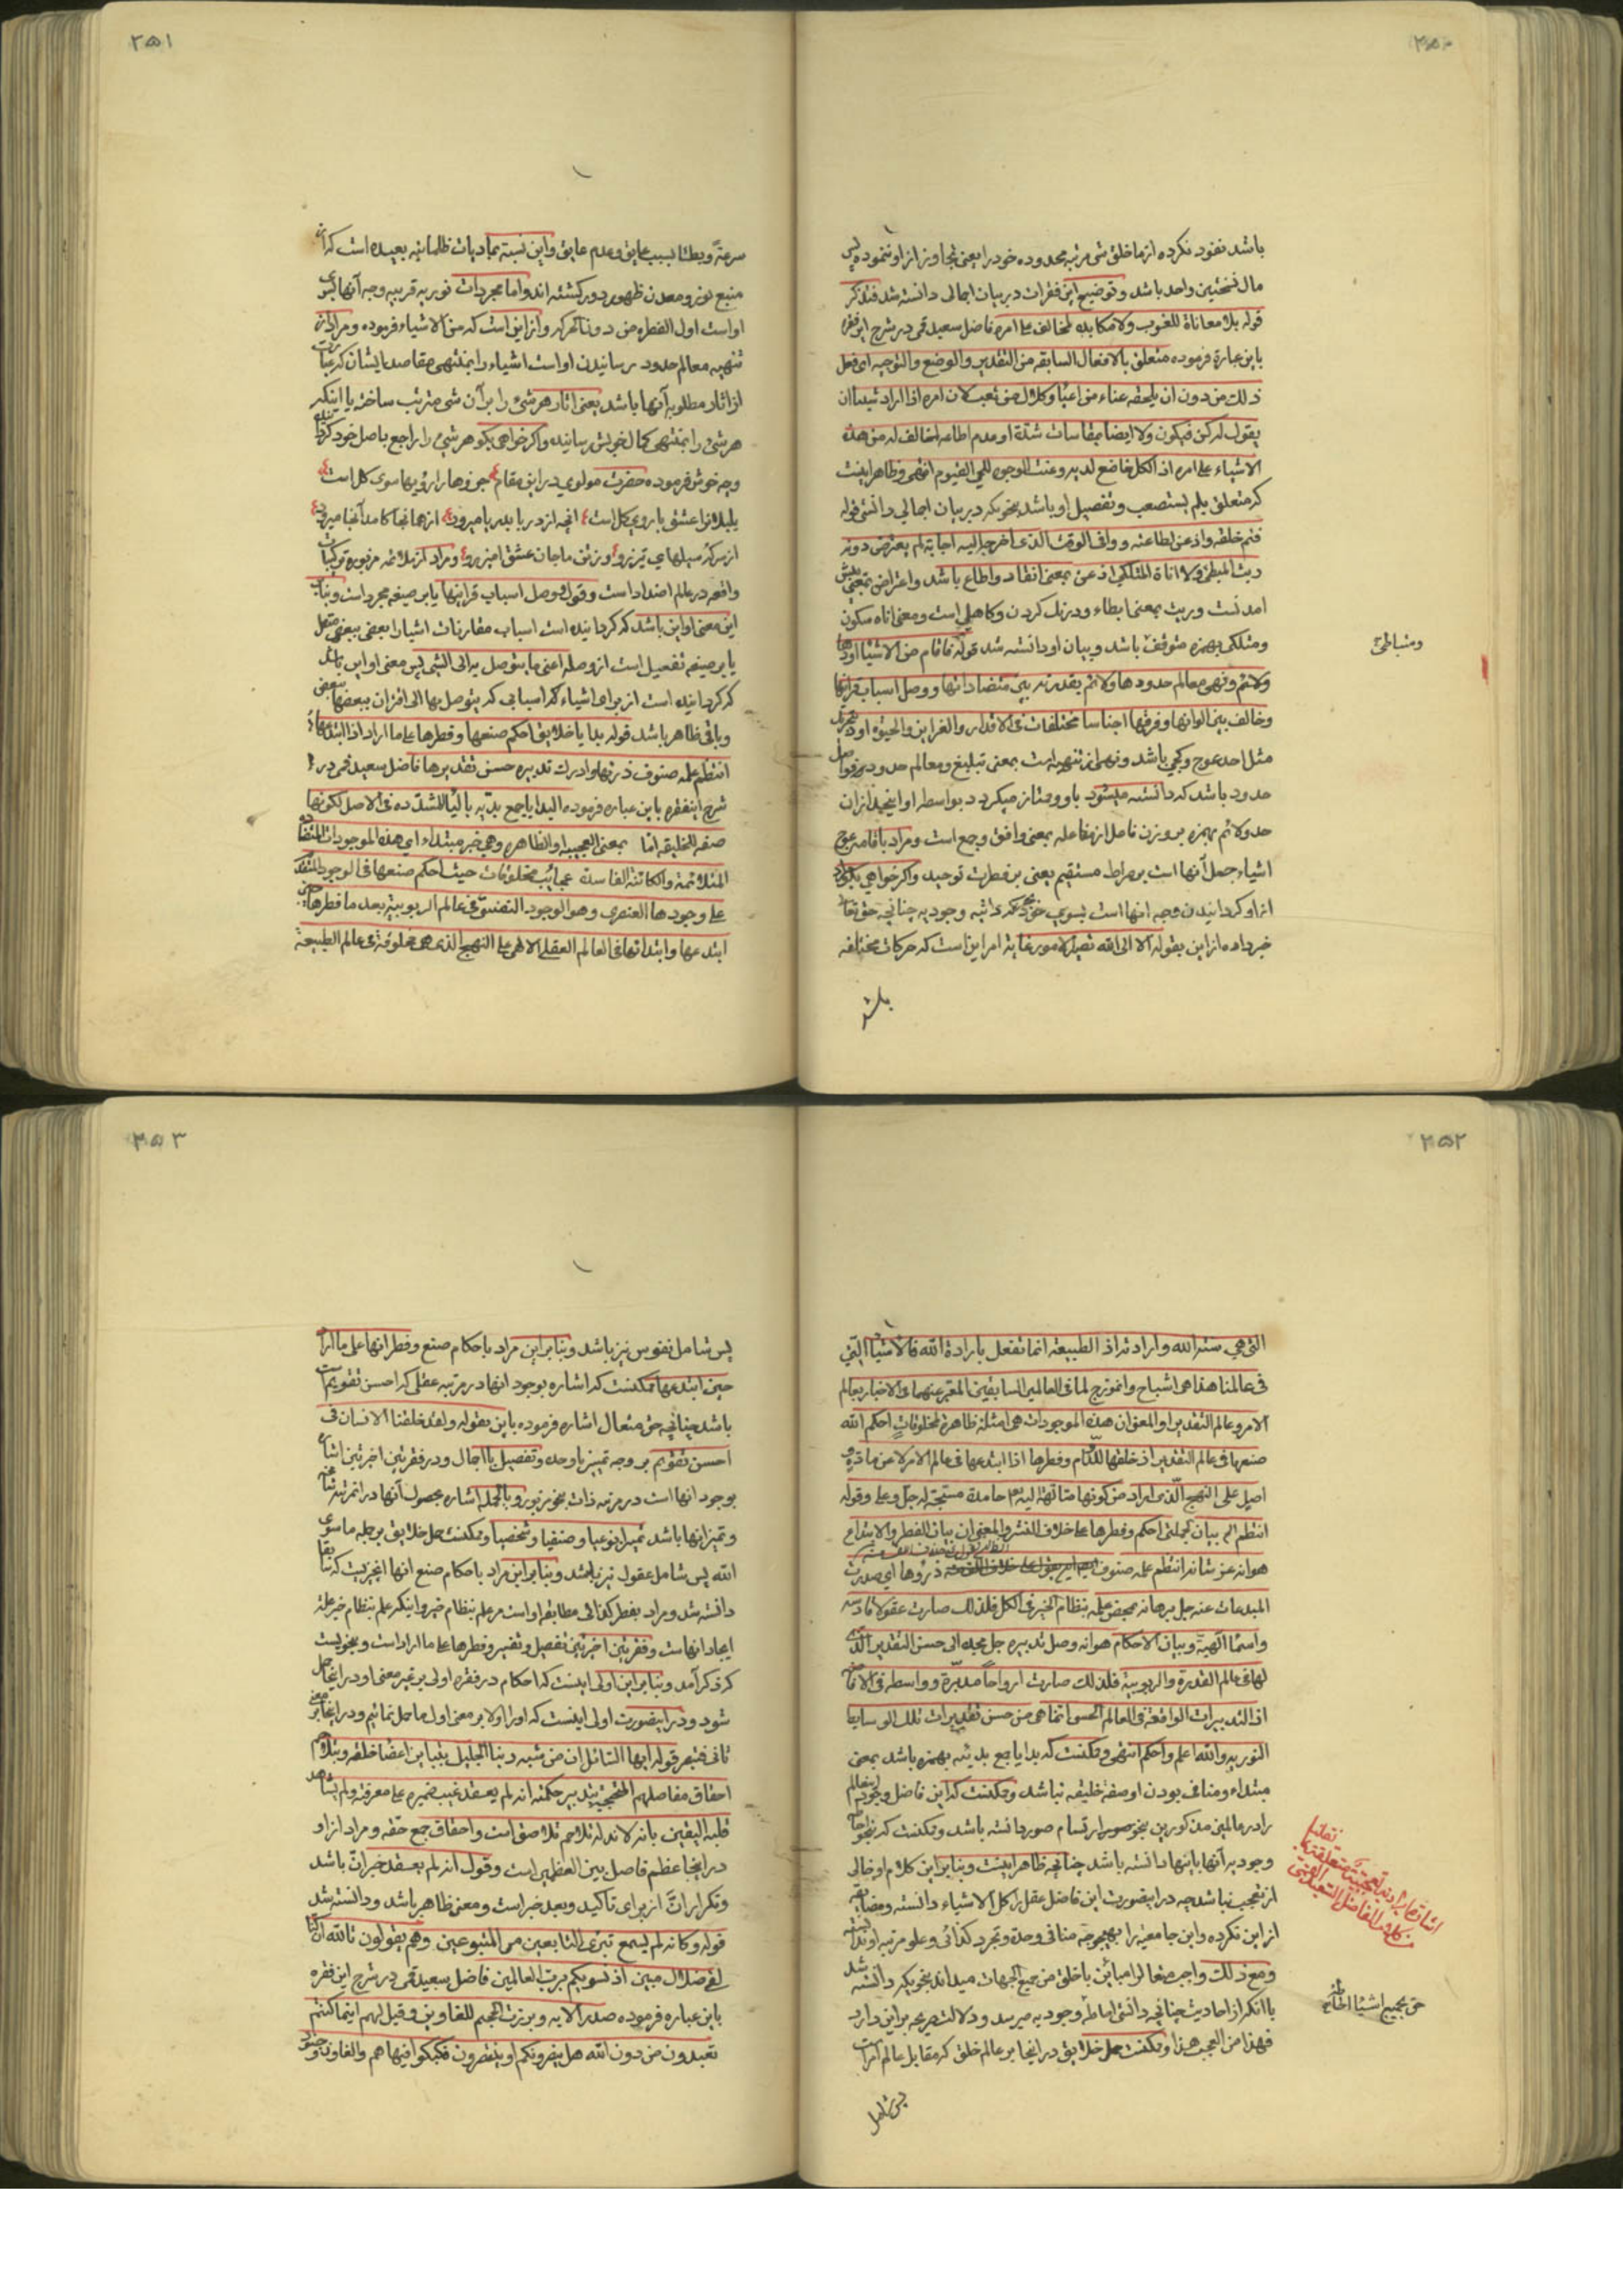 ۲۵۰
باشد نفوذ نکرده از ما خلق شی مرتبه محدوده خود را یعنی تجاوز از او ننموده پس
مال نسختین واحد باشد و توضیح این فقرات در بیان اجمالی دانسته شد فتذکر
قوله بلا معاناة للغوب ولا مکابدة لمخالف علی امره فاضل سعید قمی در شرح این فقره
باین عبارة فرموده متعلق بالافعال السابقه من التقدیر والوضع والتوجیه ای فعل
ذلک من دون ان یلحقه عناء من اعیاء وکلال من تعب لان امره اذا اراد شیئا ان
یقول له کن فیکون ولا ایضا بمقاسات شدة او عدم اطاعه لمخالف له من هذه
الاشیاء علی امره اذ الکل خاضع لدیه وعنت الوجوه للحی القیوم انتهی وظاهر اینست
که متعلق بلم یستصعب و تفصیل او باشد بنحویکه در بیان اجمالی دانستی قوله
فتم خلقه واذعن لطاعته ووافی الوقت الذی اخرجه الیه اجابة لم یعترض دونه
ریث المبطئ ولا اناة المتلکئ اذعن بمعنی انقاد واطاع باشد واعتراض بمعنی پیش
امدنست وریث بمعنی ابطاء ودرنک کردن وکاهلی است ومعنی اناه سکون
ومتلکی بهمزه متوقف باشد وبیان او دانسته شد قوله فاقام من الاشیاء اودها
ونهی معالم حدودها ولائم بقدرته بین متضاداتها ووصل اسباب قرائنها
وخالف بین الوانها وفرقها اجناسا مختلفات فی الاقدار والغرایز والهیئات اود بتحریک
مثل احد عوج وکجی باشد ونهی از تنهیه است بمعنی تبلیغ ومعالم حدود فواصل
حدود باشد که دانسته میشود باو وممتاز میکردد بواسطه او اینچیز از ان
حد ولائم بهمزه بر وزن فاعل از مفاعله بمعنی وافق وجمع است ومراد باقامه عوج
اشیاء جعل آنها است بر صراط مستقیم یعنی بر فطرت توحید واکر خواهی بکو مراد
از او کردانیدن وجه انها است بسوی حق وجودیه چنانچه حق تعالی
خبر داده از این بقوله الا الی الله تصیر الامور غایة امر این است که حرکات مختلفه
باشد
۲۵۱
سرعة وبطئا بسبب عایق وعدم عایق واین نسبة بمادیات ظلمانیه بعیده است که از
منبع نور ومعدن ظهور دور کشته اند واما مجردات نوریه قریبه وجه آنها بسوی
او است اول الفطره من دون تحرک واز این است که من الاشیاء فرموده ومراد از
تنهیه معالم حدود رسانیدن او است اشیاء را بمنتهی مقاصد ایشان که عبارت
از اثار مطلوبه آنها باشد یعنی اثار هر شیء را بر آن شی مترتب ساخته یا اینکه
هر شیء را بمنتهی کمال خویش رسانیده واکر خواهی بکو هر شیء را راجع باصل خود کردانیده
وچه خوش فرموده حضرت مولوی در این مقام جزوها را رویها سوی کل است
بلبلانرا عشق با روی کل است انچه از دریا بدریا میرود از همانجا کامد آنجا میرود
از سر که سیلهای تیزرو وز تن ما جان عشق امیز رو ومراد از ملائمه مزبوره ترکیبات
واقعه در عالم اضداد است وقول ووصل اسباب قرائنها یا بر صیغه مجرد است وبنابر
این معنی او این باشد که کردانیده است اسباب مقارنات اشیا را بعضی ببعضی متصل
یا بر صیغه تفعیل است از وصله اعنی ما یتوصل به الی الشی پس معنی او این باشد
که کردانیده است از برای اشیاء کذا اسبابی که یتوصل بها الی اقتران بعضها ببعض
وباقی ظاهر باشد قوله بدایا خلایق احکم صنعها وفطرها علی ما اراد اذ ابتدعها
انتظم علمه صنوف ذرئها وادرک تدبیره حسن تقدیرها فاضل سعید قمی در
شرح اینفقره باین عباره فرموده البدایا جمع بدیّه بالیاء المشدده فی الاصل لکونها
صفه للخلیقه اما بمعنی العجیبه او الظاهره وهی خبر مبتداء ای هذه الموجودات المتضاده
المتلائمة والکائنة الفاسدة عجائب مخلوقات حیث احکم صنعها فی الوجود المتقدم
علی وجودها العنصری وهو الوجود التضوئی فی عالم الربوبیة بعد ما فطرها حین
ابتدعها وابتداثها فی العالم العقلی الالهی علی النهج الذی هی مخلوقة فی عالم الطبیعة
ومتباطئ
۲۵۲
التی هی سنة الله وارادته اذ الطبیعة انما تفعل بارادة الله فالاشیاء التی
فی عالمنا هذا هی اشباح وانموزج لما فی العالمین السابقین المعبر عنهما فی الاخبار بعالم
الامر وعالم التقدیر او المعنی ان هذه الموجودات هی امثلة ظاهرة لمخلوقات احکم الله
صنعها فی عالم التقدیر اذ خلقها وفطرها اذا ابتدعها فی عالم الامر لا عن مادة و
اصل علی النهج الذی اراد من کونها مشتاقة الیه حامدة مسبحة له جل وعلا وقوله
انتظم الی بیان لجملتی احکم وفطرها علی خلاف النشر والمعنی ان بیان الفطر والابتداع
هو انه عز شانه انتظم علمه صنوف ذروها ای صدرت
المبدعات عنه جل برهانه بمحض علمه بنظام الخیر فی الکل فلذلک صارت عقولا قادسه
واسماء الهیة وبیان الاحکام هو انه وصل تدبیره جل مجده الی حسن التقدیر الذی
لها فی عالم القدرة والربوبیة فلذلک صارت ارواحا مدبرة وواسطه فی الافاضه
اذ التدبیرات الواقعة فی العالم الحسی انما هی من حسن تقدیرات تلک الوسایط
النوریه والله اعلم واحکم انتهی وممکنست که بدایا جمع بدیئه بهمزه باشد بمعنی
مبتداء ومنافی بودن او صفة خلیقه نباشد وممکنست که این فاضل وجود اینعالم
را در عالمین مذکورین بنحو صور ارتسام صور دانسته باشد وممکنست که بنحو احاطه
وجودیه آنها باینها دانسته باشد چنانچه ظاهر اینست وبنابر این کلام او خالی
از تعجب نباشد چه در اینصورت این فاضل عقل را کل الاشیاء دانسته ومضایقه
از این نکرده واین جامعیة را بهیچوجه منافی وحدة وتجرد کذائی وعلو مرتبه او ندانسته
ومع ذلک واجب تعالی را مباین با خلق من جمیع الجهات میداند بنحویکه دانسته شد
با انکه از احادیث چنانچه دانستی احاطه وجودیه میرسد ودلالت صریحه بر این دارد
فهذا من العجب هذا وممکنست حمل خلایق در اینجا بر عالم خلق که مقابل عالم امر است
پس شامل
حق بجمیع اشیاء احاطه
۲۵۳
پس شامل نفوس نیز باشد وبنابر این مراد باحکام صنع وفطر انها علی ما اراد
حین ابتدعها ممکنست که اشاره بوجود انها در مرتبه عقلی که احسن تقویم است
باشد چنانچه حق متعال اشاره فرموده باین بقوله ولقد خلقنا الانسان فی
احسن تقویم بر وجه تمییز با وحدة وتفصیل با اجمال ودر فقرتین اخرتین اشاره
بوجود انها است در مرتبه ذات بنحو مزبور وبالجمله اشاره بحصول آنها در انمرتبه شامخه
وتمیز انها باشد تمییزا نوعیا وصنفیا وشخصیا وممکنست حمل خلایق بر جمله ما سوی
الله پس شامل عقول نیز باشد وبنابر این مراد باحکام صنع انها انچیزیست که سابقا
دانسته شد ومراد بفطر کذائی مطابقه او است مر علم بنظام خیر واینکه علم بنظام خیر علة
ایجاد انهاست وفقرتین اخرتین تفصیل وتفسیر وفطرها علی ما اراد است وبنحویست
که ذکر آمد وبنابر این اولی اینست که احکام در فقره اولی بر غیر معنی او در اینجا حمل
شود ودر اینصورت اولی اینست که او را اولا بر معنی اول ما حمل نمائیم ودر اینجا بر معنی
ثانی فتبصر قوله ایها السائل ان من شبه ربنا الجلیل بتباین اعضاء خلقه وبتلاحم
احقاق مفاصلهم المحتجبة بتدبیر حکمته انه لم یعقد غیب ضمیره علی معرفته ولم یشاهد
قلبه الیقین بانه لا ند له تلاحم تلاصق است واحقاق جمع حقه ومراد از او
در اینجا عظم فاصل بین العظمین است وقول انه لم یعقد خبر انّ باشد
وتکرار انّ از برای تاکید وبعد خبر است ومعنی ظاهر باشد ودانسته شد
قوله وکانه لم یسمع تبری التابعین من المتبوعین وهم یقولون تالله ان کنا
لفی ضلال مبین اذ نسویکم برب العالمین فاضل سعید قمی در شرح این فقره
باین عباره فرموده صدر الایه وبرزت الجحیم للغاوین وقیل لهم اینما کنتم
تعبدون من دون الله هل ینصرونکم او ینتصرون فکبکبوا فیها هم والغاون وجنود